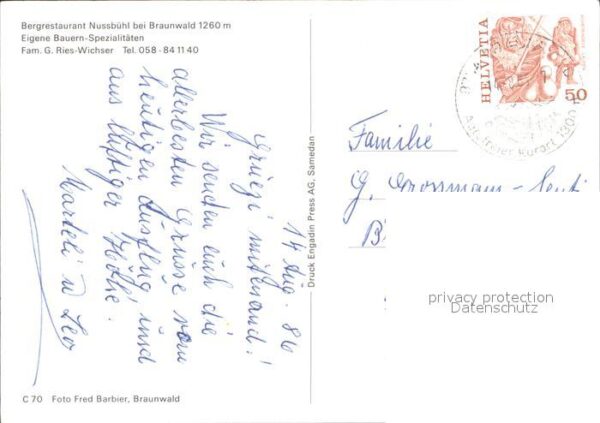 Bergrestaurant Nussbühl bei Braunwald 1260 m
Eigene Bauern-Spezialitäten
Fam. G. Ries-Wichser Tel. 058 - 84 11 40
14 Aug. 86
Grüezi mitenand!
Wir senden euch die
allerbesten Grüsse vom
heutigen Ausflug und
aus luftiger Höhe.
Marteli u Leo
Druck Engadin Press AG, Samedan
C 70 Foto Fred Barbier, Braunwald
HELVETIA
50
Autofreier Kurort 1300 m
Familie
G. Grossmann-Senti
B
privacy protection
Datenschutz